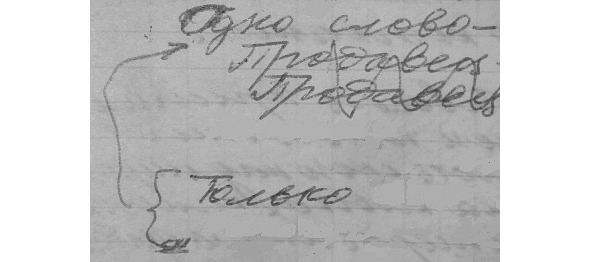 Одно слово –
Продавец.
Продавец
Только